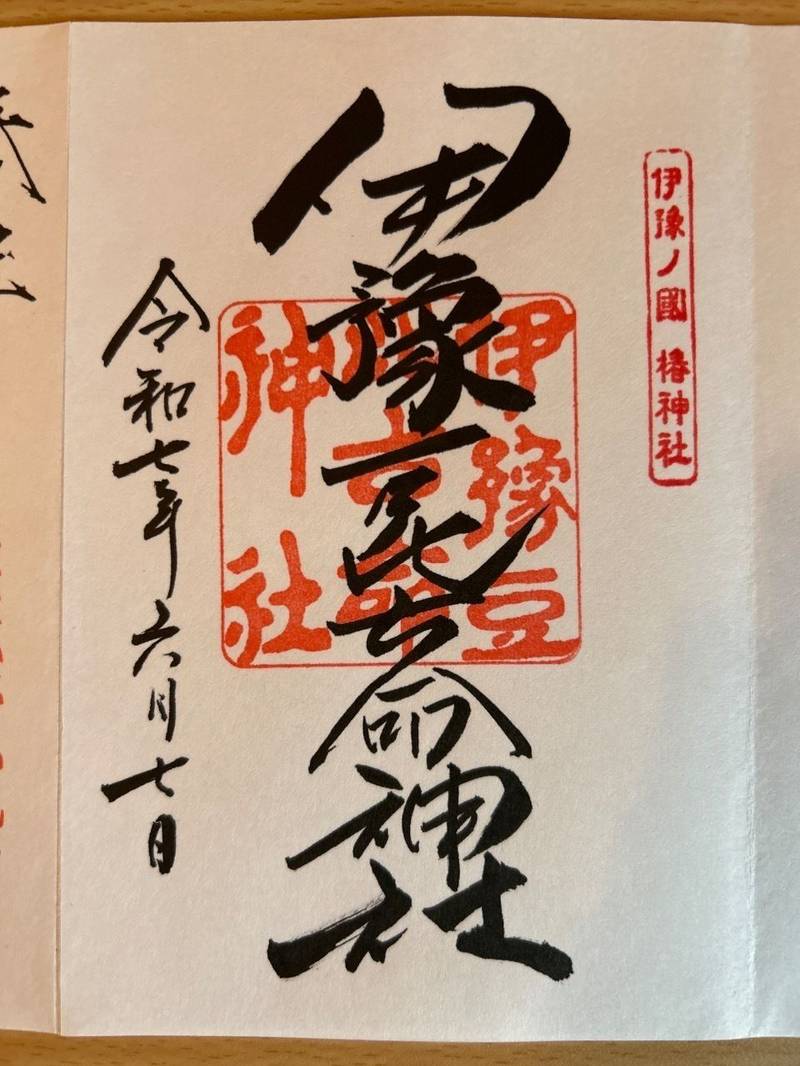 伊豫ノ國 椿神社
伊豫豆比古命神社
伊豫豆
比古命
神社
令和七年六月七日